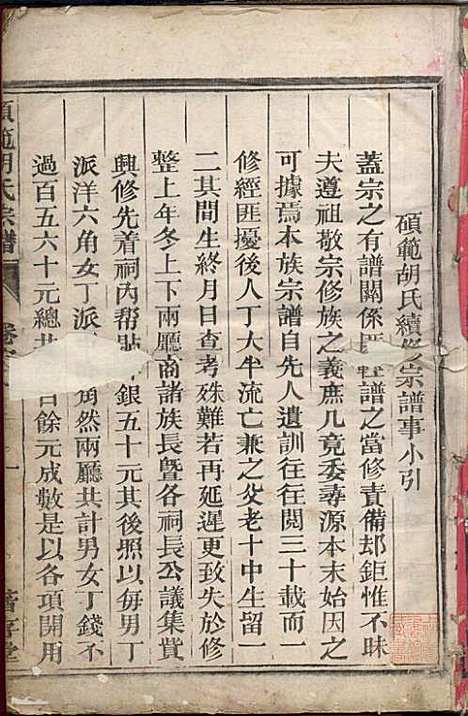 碩範胡氏續修宗譜事小引
蓋宗之有譜關係匪輕譜之當修責備却鉅惟不昧
夫遵祖敬宗修族之義庶几竟委尋源本末始因之
可據焉本族宗譜自先人遺訓往往閱三十載而一
修經匪擾後人丁大半流亡兼之父老十中生留一
二其間生終月日查考殊難若再延遲更致失於修
整上年冬上下兩廳商諸族長暨各祠長公議集貲
興修先着祠內帮貼銀五十元其後照以每男丁
派洋六角女丁派角然兩廳共計男女丁錢不
過百五六十元總共百餘元成數是以各項開用
碩範胡氏宗譜
卷
一